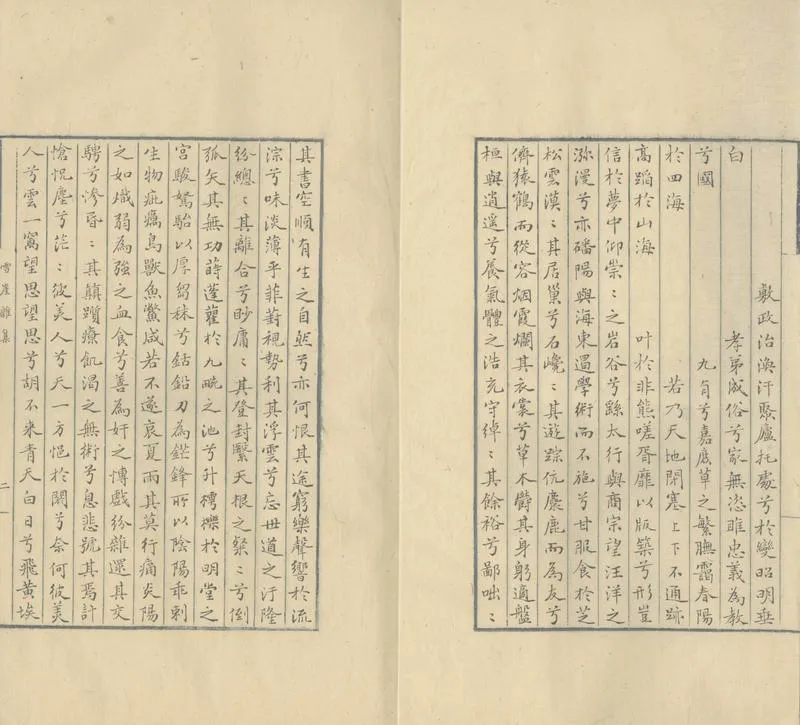 敷政治渙汗聚廬托處兮於變昭明垂
白 孝弟成俗兮家無恣睢忠義為教
兮國 九有兮嘉庶草之繁膴靄春陽
於四海 若乃天地閉塞上下不通跡
高蹈於山海 叶於非熊嗟胥靡以版築兮形豈
信於夢中仰崇〻之岩谷兮繇太行與商宗望汪洋之
瀰漫兮亦磻陽與海東遏學術而不施兮甘服食於芝
松雲漠〻其居巢兮石巉〻其遊踪伉麋鹿而為友兮
儕猿鶴而從容烟霞爛其衣裳兮草木欝其身躬適盤
桓與逍遙兮養氣體之浩充守綽〻其餘裕兮鄙咄〻
其書空順有生之自然兮亦何恨其途窮樂聲響於流
淙兮味淡薄乎菲葑視勢利其浮雲兮忘世道之汙隆
紛總〻其離合兮眇庸〻其登封繫天根之粲〻兮倒
弧矢其無功蒔蓬蘿於九畹之池兮升樗櫟於明堂之
宮駿駑駘以厚芻秣兮銛鉛刀為鋩鋒所以陰陽乖剌
生物疵癘鳥獸魚鱉咸若不遂哀夏雨其莫行痛炎陽
之如熾弱為強之血食兮善為奸之慱戲紛雜遝其交
騁兮滲昏〻其顛躓療飢渴之無術兮息悲號其焉計
愴怳塵兮茫〻彼美人兮天一方悒於闕兮奈何彼美
人兮雲一窩望思望思兮胡不來青天白日兮飛黃埃
雪崖雜集